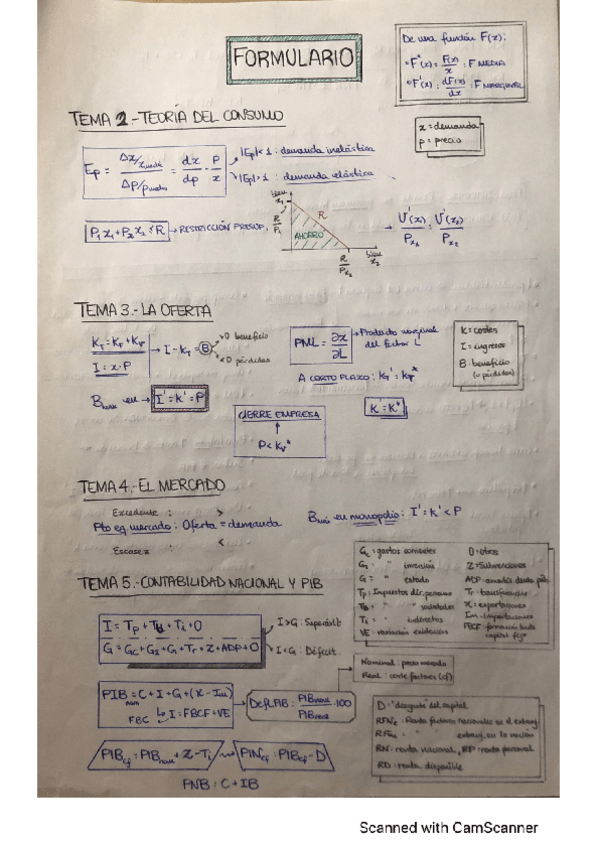 FORMULARIO
De una función F(x):
• F*(x) = F(x)/x : F MEDIA
• F'(x) = dF(x)/dx : F MARGINAL
TEMA 2.- TEORÍA DEL CONSUMO
x = demanda
p = precio
Ep = Δx/x / ΔP/p = dx/dp · P/x
|Ep| < 1 : demanda inelástica
|Ep| > 1 : demanda elástica
P1 x1 + P2 x2 ≤ R → RESTRICCIÓN PRESUP.
bien x1
R/P1
R
AHORRO
R/Px2
bien x2
→ U'(x1)/Px1 = U'(x2)/Px2
TEMA 3.- LA OFERTA
KT = KF + KV
I = x·P
→ I - KT = B
> 0 beneficio
< 0 pérdidas
PML = ∂x/∂L
→ Producto marginal del factor L
K = costes
I = ingresos
B = beneficio
(o pérdidas)
Bmax en → I' = K' = P
A CORTO PLAZO : KT' = KV*
CIERRE EMPRESA
↑
P < KV*
K' = K*
TEMA 4.- EL MERCADO
Excedente : >
Pto eq. mercado : Oferta = demanda
Escasez : <
Bmáx en monopolio : I' = K' < P
TEMA 5.- CONTABILIDAD NACIONAL Y PIB
Gc = gastos corrientes
GI = " inversión
G = " estado
Tp = Impuestos dir. personas
" sociedades
Ti = " indirectos
VE = variación existencias
O = otros
Z = Subvenciones
Tr = transferencias
X = exportaciones
Im = importaciones
FBCF = formación bruta capital fijo
I = Tp + Tb + Ti + O
G = Gc + GI + G + Tr + Z + ADP + O
I > G : Superávit
I < G : Déficit
Nominal : precio mercado
Real : coste factores (cf)
PIBnom = C + I + G + (X - Im)
FBC ↳ I = FBCF + VE
Defl. PIB : PIBnom/PIBreal · 100
D = desgaste del capital
RFNE = Renta factores nacionales en el extranj.
RFEN = " extranj. en la nación
RN = renta nacional, RP = renta personal
RD = renta disponible
PIBcf = PIBnom + Z - Ti → PINcf = PIBcf - D
PNB : C + IB
Scanned with CamScanner